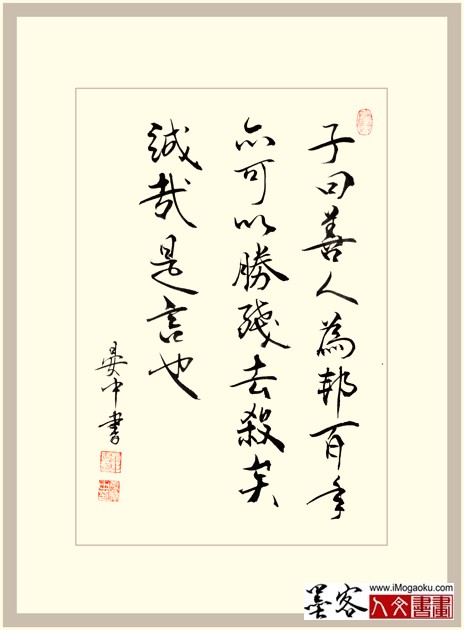 子曰善人為邦百年
亦可以勝殘去殺矣
誠哉是言也
晏中書
墨客
www.iMogaoku.com
人文書畫